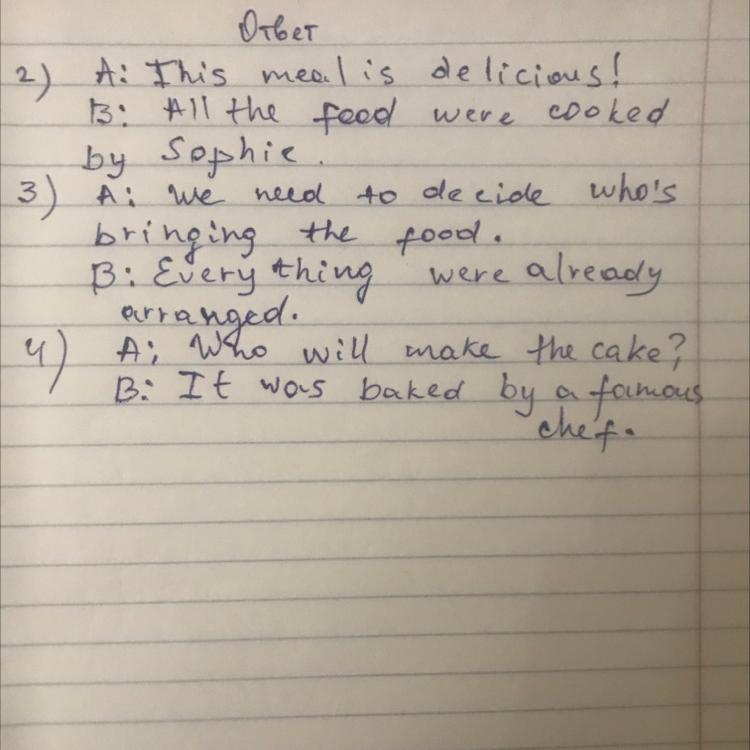 Ответ
2) A: This meal is delicious!
B: All the food were cooked
by Sophie.
3) A: We need to decide who's
bringing the food.
B: Everything were already
arranged.
4) A: Who will make the cake?
B: It was baked by a famous
chef.